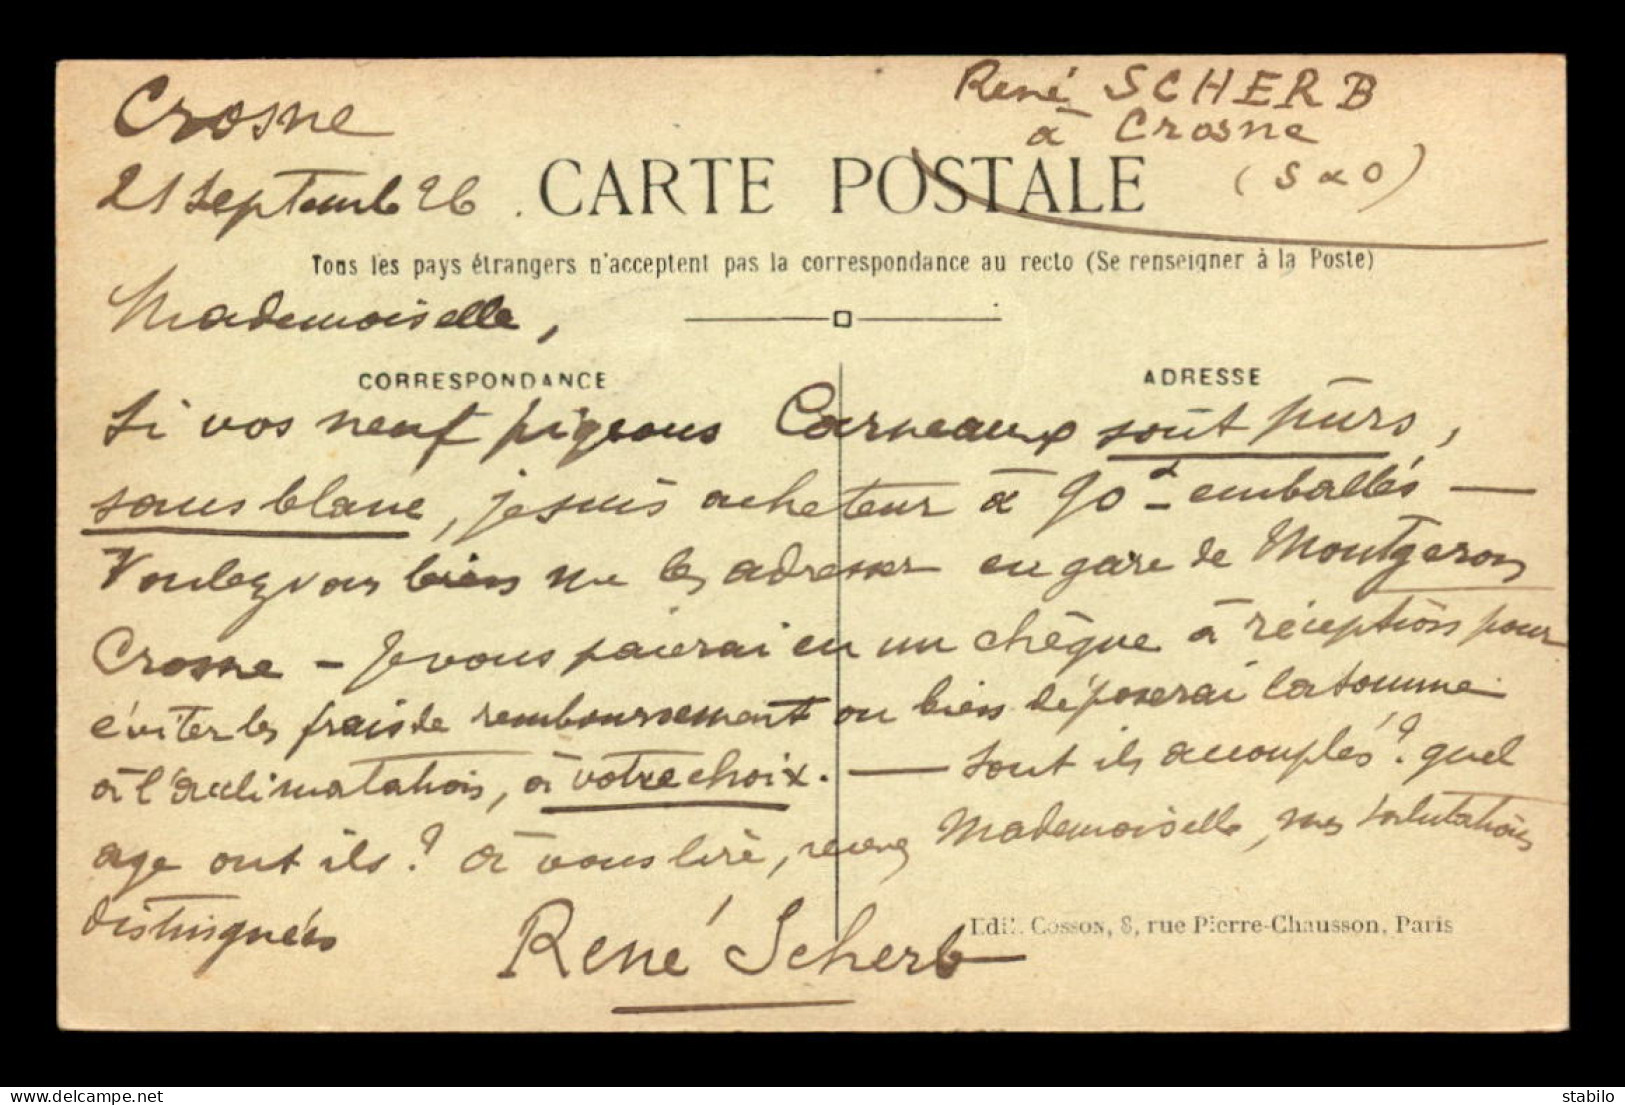 René SCHERB
à Crosne
(S & O)
Crosne
21 Septembre 26.
CARTE POSTALE
Tous les pays étrangers n'acceptent pas la correspondance au recto (Se renseigner à la Poste)
Mademoiselle,
CORRESPONDANCE
ADRESSE
Si vos neuf pigeons Carneaux sont purs,
sans blanc, je suis acheteur à 90 emballés —
Voulez vous bien me les adresser en gare de Montgeron
Crosne - Je vous paierai en un chèque à réception pour
éviter les frais de remboursement ou bien déposerai la somme
à l'acclimatation, à votre choix. — Sont ils accouplés? quel
age ont ils? à vous lire, recevez Mademoiselle, mes salutations
distinguées
René Scherb
Edit. Cosson, 8, rue Pierre-Chausson, Paris
stabilo